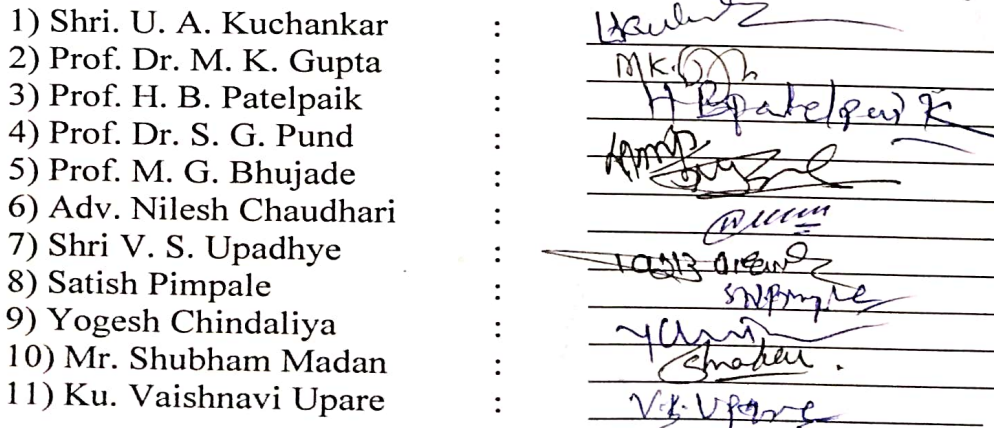 1) Shri. U. A. Kuchankar :
2) Prof. Dr. M. K. Gupta : M.K.
3) Prof. H. B. Patelpaik : H Bpatelpaik
4) Prof. Dr. S. G. Pund :
5) Prof. M. G. Bhujade :
6) Adv. Nilesh Chaudhari :
7) Shri V. S. Upadhye :
8) Satish Pimpale :
9) Yogesh Chindaliya :
10) Mr. Shubham Madan :
11) Ku. Vaishnavi Upare :